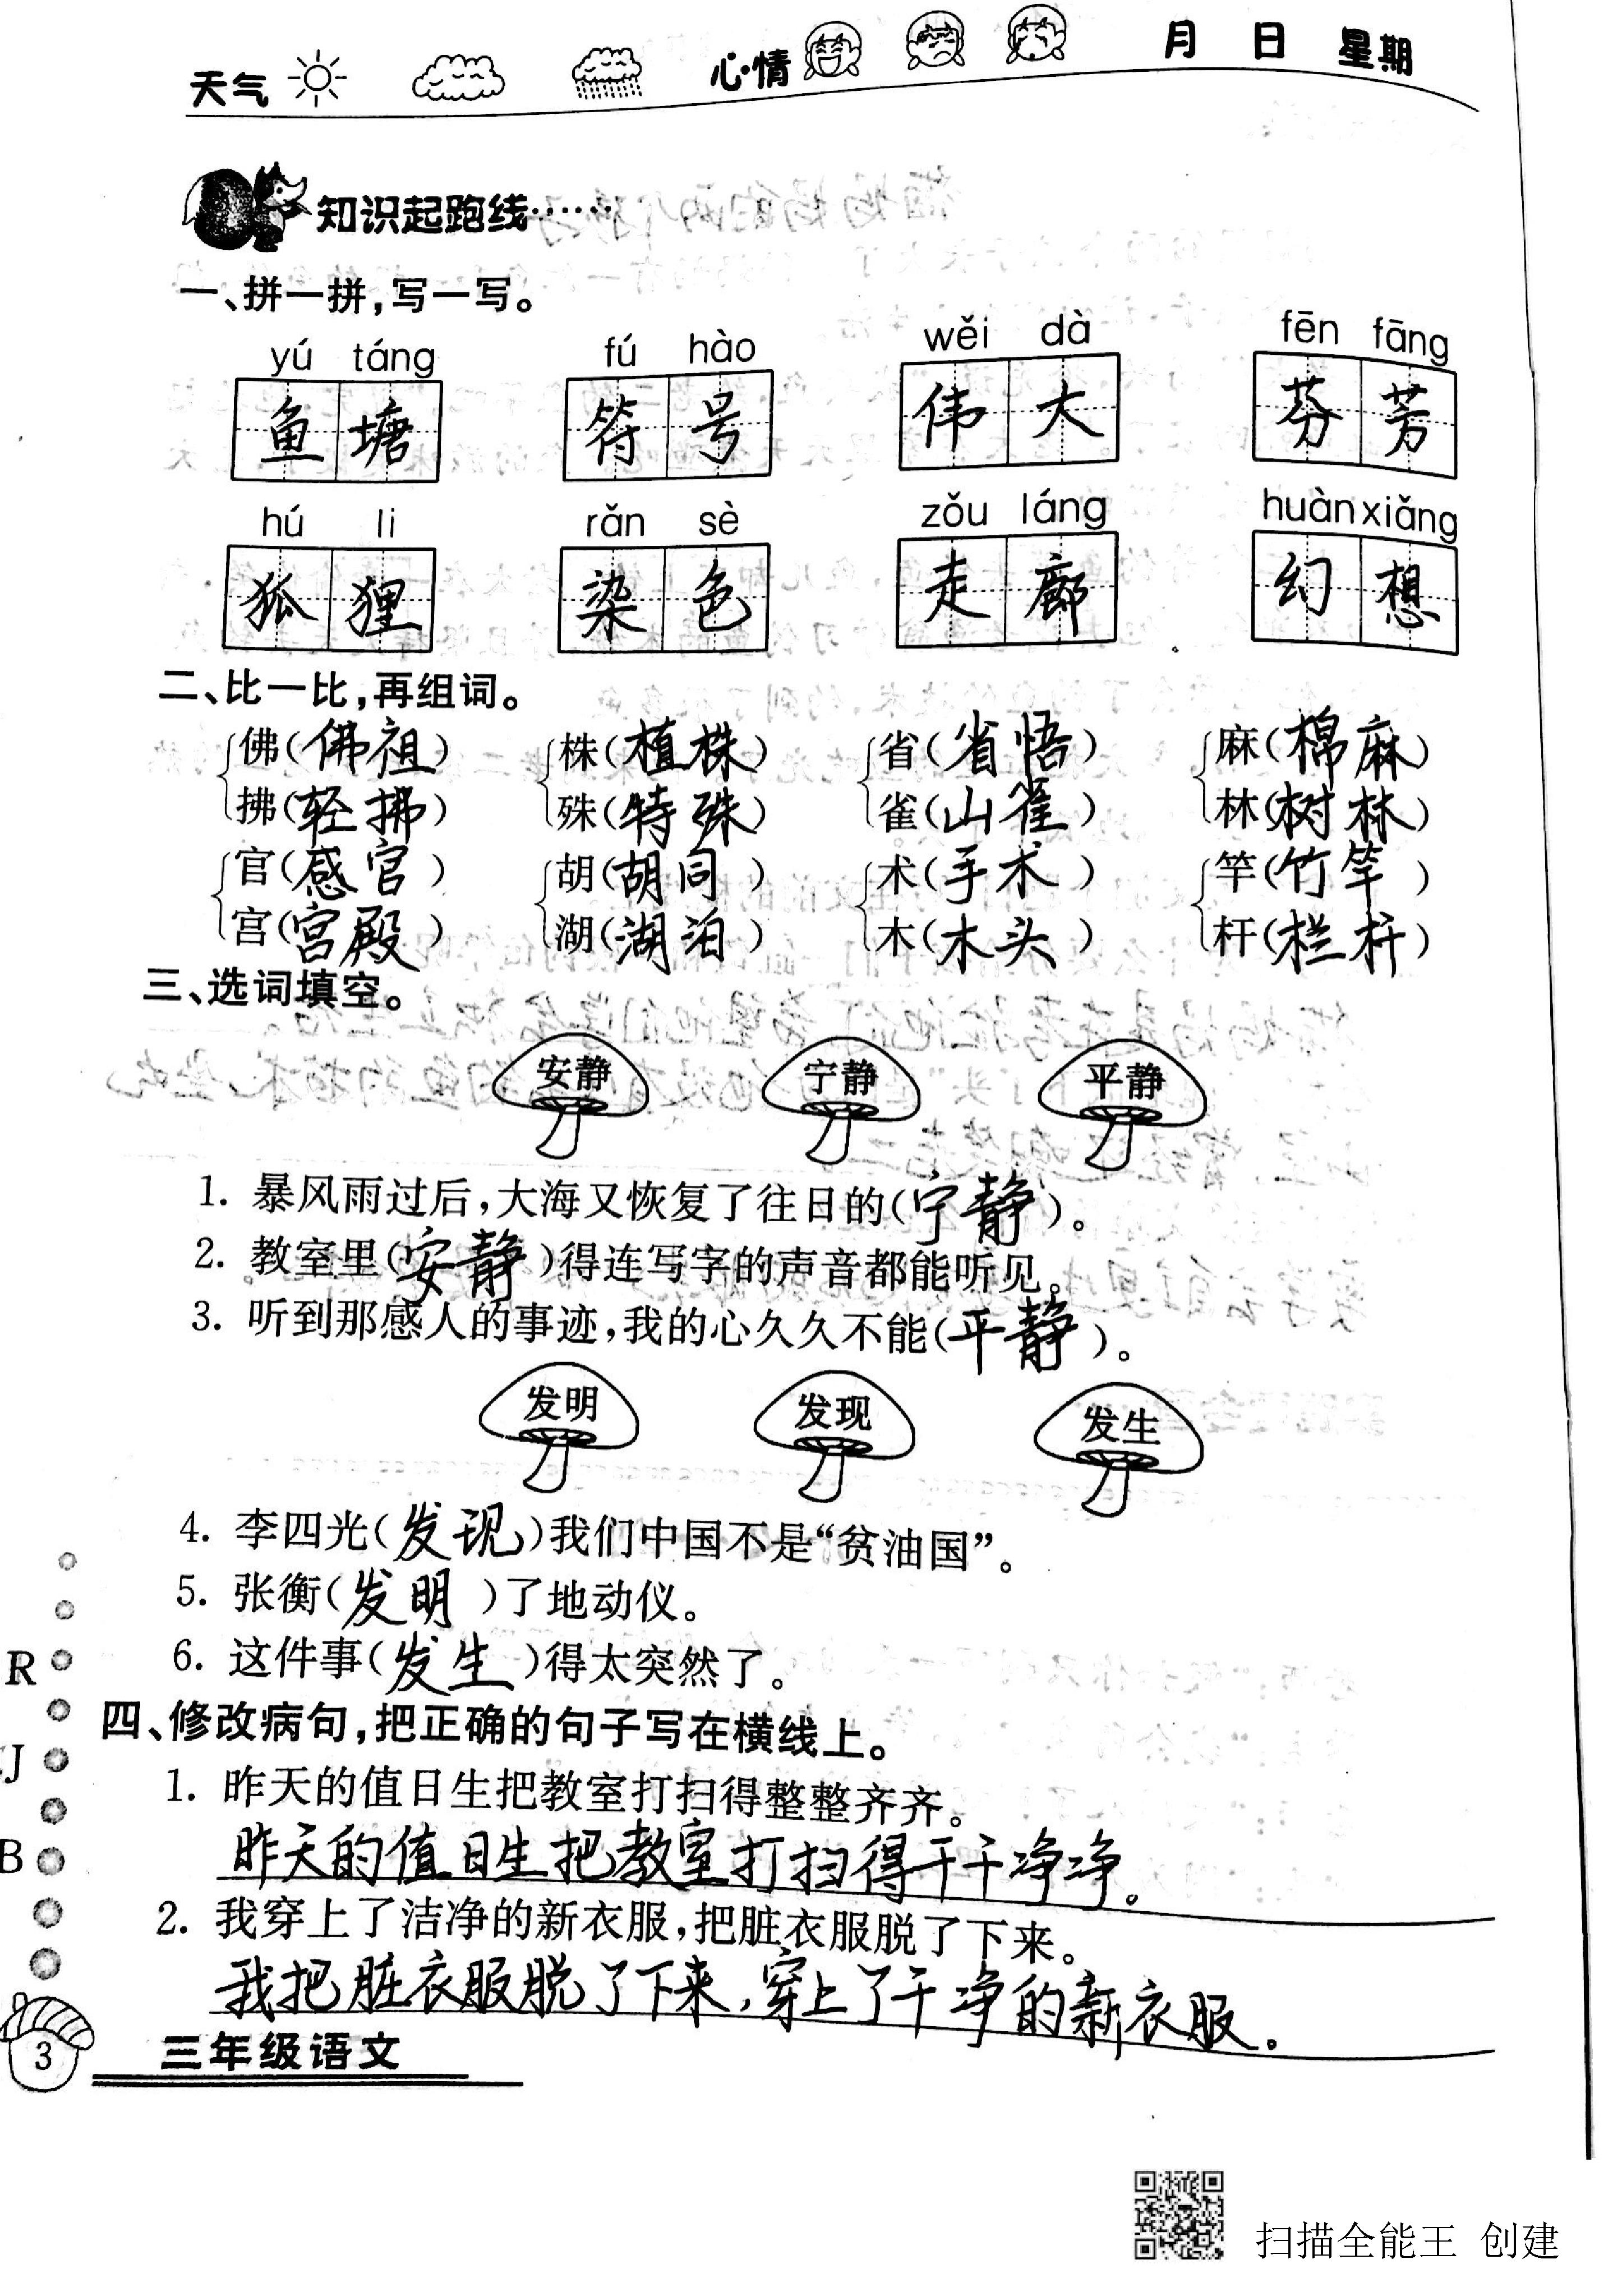 天气 心情 月 日 星期
知识起跑线……
一、拼一拼,写一写。
yú táng fú hào wěi dà fēn fāng
鱼塘 符号 伟大 芬芳
hú li rǎn sè zǒu láng huàn xiǎng
狐狸 染色 走廊 幻想
二、比一比,再组词。
佛(佛祖) 株(植株) 省(省悟) 麻(棉麻)
拂(轻拂) 殊(特殊) 雀(山雀) 林(树林)
官(感官) 胡(胡同) 术(手术) 竿(竹竿)
宫(宫殿) 湖(湖泊) 木(木头) 杆(栏杆)
三、选词填空。
安静 宁静 平静
1. 暴风雨过后,大海又恢复了往日的(宁静)。
2. 教室里(安静)得连写字的声音都能听见。
3. 听到那感人的事迹,我的心久久不能(平静)。
发明 发现 发生
4. 李四光(发现)我们中国不是“贫油国”。
5. 张衡(发明)了地动仪。
6. 这件事(发生)得太突然了。
四、修改病句,把正确的句子写在横线上。
1. 昨天的值日生把教室打扫得整整齐齐。
昨天的值日生把教室打扫得干干净净。
2. 我穿上了洁净的新衣服,把脏衣服脱了下来。
我把脏衣服脱了下来,穿上了干净的新衣服。
R
J
B
3 三年级语文
扫描全能王 创建